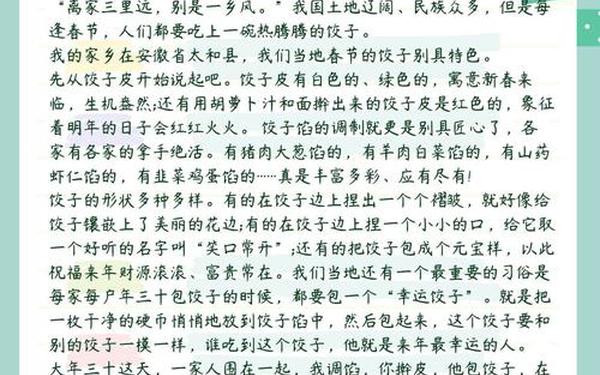 “离家三里远，别是一乡风。”我国土地辽阔、民族众多，但是每
逢春节，人们都要吃上一碗热腾腾的饺子。
我的家乡在安徽省太和县，我们当地春节的饺子别具特色。
先从饺子皮开始说起吧。饺子皮有白色的、绿色的，寓意新春来
临，生机盎然;还有用胡萝卜汁和面擀出来的饺子皮是红色的，象征
着明年的日子会红红火火。饺子馅的调制就更是别具匠心了，各
家有各家的拿手绝活。有猪肉大葱馅的，有羊肉白菜馅的，有山药
虾仁馅的，有韭菜鸡蛋馅的……真是丰富多彩、应有尽有!
饺子的形状多种多样。有的在饺子边上捏出一个个褶皱，就好像给
饺子镶嵌上了美丽的花边;有的在饺子边上捏一个小小的口，给它取
一个好听的名字叫“笑口常开”;还有的把饺子包成个元宝样，以此
祝福来年财源滚滚、富贵常在。我们当地还有一个最重要的习俗是
每家每户年三十包饺子的时候，都要包一个“幸运饺子”。就是把
一枚干净的硬币悄悄地放到饺子馅中，然后包起来，这个饺子要和
别的饺子一模一样，谁吃到这个饺子，他就是来年最幸运的人。
大年三十这天，一家人围在一起，我调馅，你擀皮，他包饺子，在